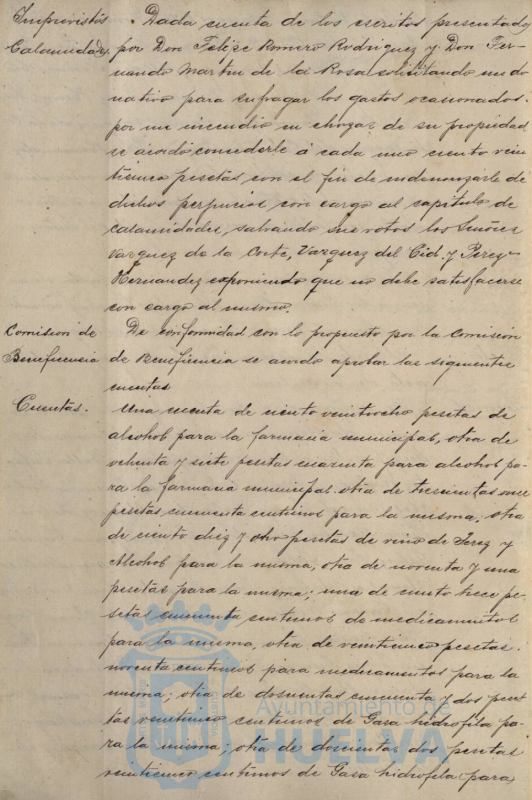 Imprevistos
Calamidades.
Dada cuenta de los escritos presentados
por Don Felipe Romero Rodriguez y Don Fer-
nando Martin de la Rosa solicitando un do
nativo para sufragar los gastos ocasionados
por un incendio en chozas de su propiedad
se acordó concederle á cada uno ciento vein
ticinco pesetas con el fin de indemnizarle de
dichos perjuicios con cargo al capitulo de
calamidades, salvando sus votos los Señores
Vazquez de la Corte, Vazquez del Cid y Perez
Hernandez exponiendo que no debe satisfacerse
con cargo al mismo.
Comision de
Beneficencia
De conformidad con lo propuesto por la Comisión
de Beneficencia se acordo aprobar las siguientes
cuentas
Cuentas.
Una cuenta de ciento veintiocho pesetas de
alcohol para la farmacia municipal, otra de
ochenta y siete pesetas cuarenta para alcohol pa-
ra la farmacia municipal otra de trescientas
pesetas cincuenta centimos para la misma, otra
de ciento diez y ocho pesetas de vino de Jerez y
Alcohol para la misma, otra de noventa y una
pesetas para la misma; una de ciento trece pe-
setas cincuenta centimos de medicamentos
para la misma, otra de veinticinco pesetas
noventa centimos para medicamentos para la
misma; otra de doscientas cincuenta y dos pese
tas veinticinco centimos de Gasa hidrofila pa-
ra la misma; otra de doscientas dos pesetas
veinticinco centimos de Gasa hidrofila para
Ayuntamiento de
HUELVA